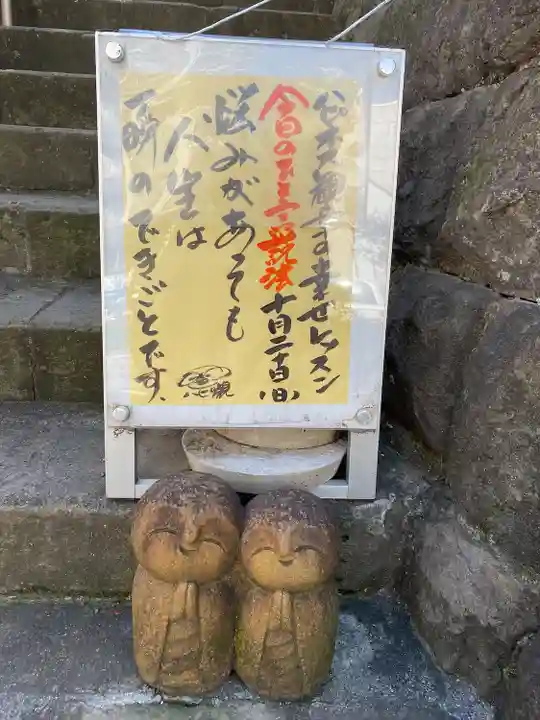 公太観す幸せレッスン
今日のひと言説法 十月二十日(日)
悩みがあっても
人生は
一瞬のできごとです。